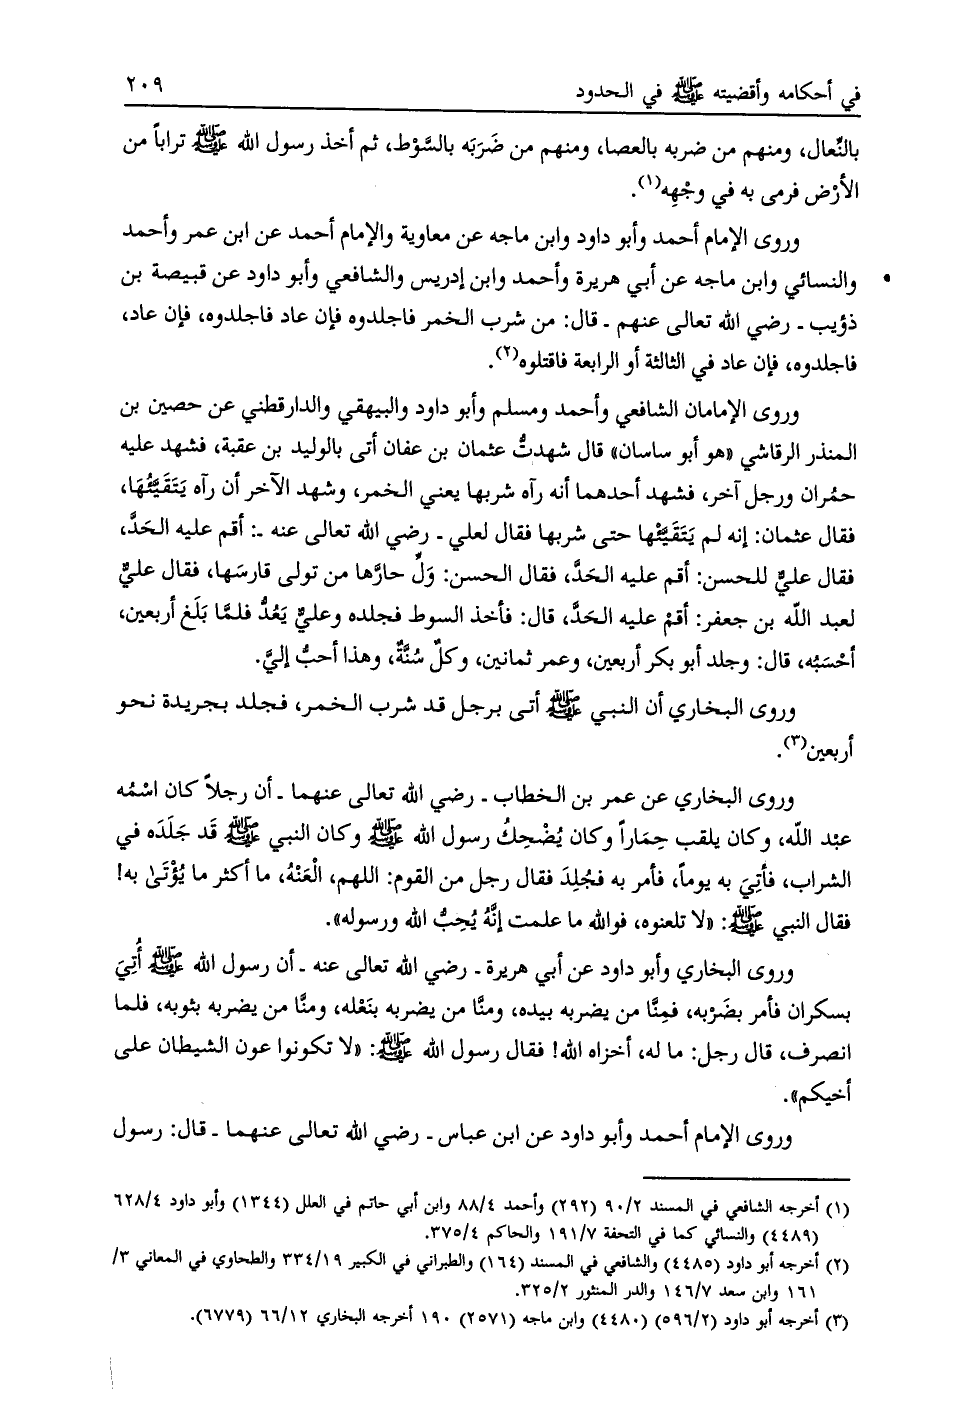 في أحكامه وأقضيته ﷺ في الحدود ٢٠٩
بالنِّعال، ومنهم من ضربه بالعصا، ومنهم من ضَرَبَه بالسَّوْط، ثم أخذ رسول الله ﷺ تراباً من
الأرْض فرمى به في وجْهِه(١).
وروى الإمام أحمد وأبو داود وابن ماجه عن معاوية والإمام أحمد عن ابن عمر وأحمد
والنسائي وابن ماجه عن أبي هريرة وأحمد وابن إدريس والشافعي وأبو داود عن قبيصة بن
ذؤيب ـ رضي الله تعالى عنهم ـ قال: من شرب الخمر فاجلدوه فإن عاد فاجلدوه، فإن عاد،
فاجلدوه، فإن عاد في الثالثة أو الرابعة فاقتلوه(٢).
وروى الإمامان الشافعي وأحمد ومسلم وأبو داود والبيهقي والدارقطني عن حصين بن
المنذر الرقاشي «هو أبو ساسان» قال شهدتُّ عثمان بن عفان أتى بالوليد بن عقبة، فشهد عليه
حمُران ورجل آخر، فشهد أحدهما أنه رآه شربها يعني الخمر، وشهد الآخر أن رآه يَتَقَيَّئُهَا،
فقال عثمان: إنه لم يَتَقَيَّئْها حتى شربها فقال لعلي ـ رضي الله تعالى عنه ـ: أقم عليه الحَدَّ،
فقال عليٌّ للحسن: أقم عليه الحَدَّ، فقال الحسن: وَلِّ حارَّها من تولى قارسَها، فقال عليٌّ
لعبد اللّه بن جعفر: أقمْ عليه الحَدَّ، قال: فأخذ السوط فجلده وعليٌّ يَعُدُّ فلمَّا بَلَغ أربعين،
أحْسَبُه، قال: وجلد أبو بكر أربعين، وعمر ثمانين، وكلٌ سُنَّةٌ، وهذا أحبُّ إليَّ.
وروى البخاري أن النبي ﷺ أتى برجل قد شرب الخمر، فجلد بجريدة نحو
أربعين(٣).
وروى البخاري عن عمر بن الخطاب ـ رضي الله تعالى عنهما ـ أن رجلاً كان اسْمُه
عبْد اللّه، وكان يلقب حِمَاراً وكان يُضْحِكُ رسول الله ﷺ وكان النبي ﷺ قَد جَلَدَه في
الشراب، فأتِيَ به يوماً، فأمر به فجُلِدَ فقال رجل من القوم: اللهم، الْعَنْهُ، ما أكثر ما يُؤْتَىٰ به!
فقال النبي ﷺ: «لا تلعنوه، فوالله ما علمت إنَّهُ يُحِبُّ الله ورسوله».
وروى البخاري وأبو داود عن أبي هريرة ـ رضي الله تعالى عنه ـ أن رسول الله ﷺ أُتِيَ
بسكران فأمر بضَرْبه، فمِنَّا من يضربه بيده، ومنَّا من يضربه بنَعْله، ومنَّا من يضربه بثوبه، فلما
انصرف، قال رجل: ما له، أخزاه الله! فقال رسول الله ﷺ: «لا تكونوا عون الشيطان على
أخيكم».
وروى الإمام أحمد وأبو داود عن ابن عباس ـ رضي الله تعالى عنهما ـ قال: رسول
(١) أخرجه الشافعي في المسند ٩٠/٢ (٢٩٢) وأحمد ٨٨/٤ وابن أبي حاتم في العلل (١٣٤٤) وأبو داود ٦٢٨/٤
(٤٤٨٩) والنسائي كما في التحفة ١٩١/٧ والحاكم ٣٧٥/٤.
(٢) أخرجه أبو داود (٤٤٨٥) والشافعي في المسند (١٦٤) والطبراني في الكبير ٣٣٤/١٩ والطحاوي في المعاني ٣/
١٦١ وابن سعد ١٤٦/٧ والدر المنثور ٣٢٥/٢.
(٣) أخرجه أبو داود (٥٩٦/٢) (٤٤٨٠) وابن ماجه (٢٥٧١) ١٩٠ أخرجه البخاري ٦٦/١٢ (٦٧٧٩).